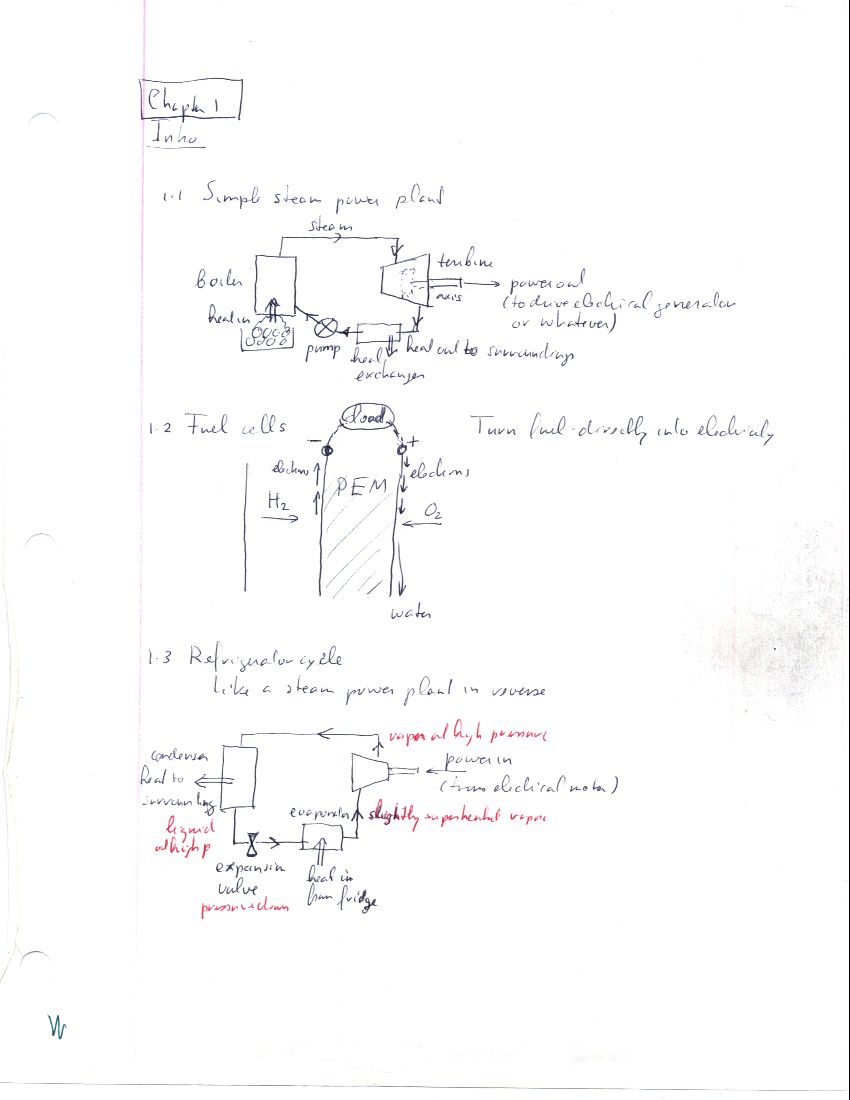 Chapter 1
Intro
1.1 Simple steam power plant
steam
boiler
turbine
power out
axis
(to drive electrical generator
or whatever)
heat in
pump
heat
exchanger
heat out to surroundings
1.2 Fuel cells
load
Turn fuel directly into electricity
−
+
electrons
electrons
PEM
H2
O2
water
1.3 Refrigerator cycle
Like a steam power plant in reverse
vapor at high pressure
condenser
heat to
surrounding
power in
(from electrical motor)
evaporator
slightly superheated vapor
liquid
at high p
expansion
valve
pressure down
heat in
from fridge